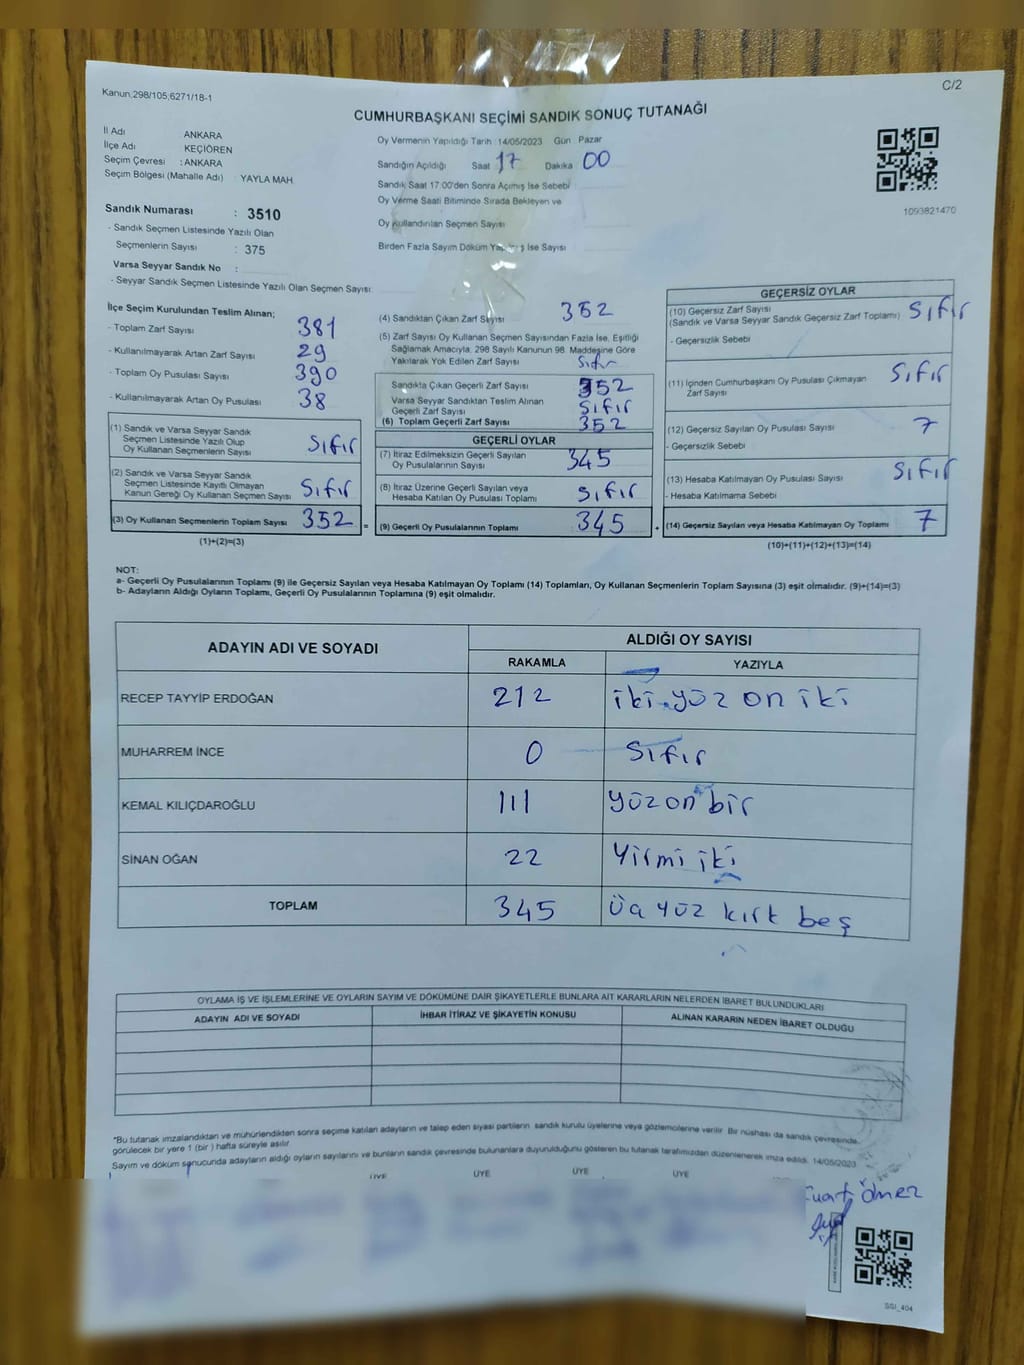 Kanun;298/105;6271/18-1
C/2
CUMHURBAŞKANI SEÇİMİ SANDIK SONUÇ TUTANAĞI
İl Adı ANKARA
İlçe Adı KEÇİÖREN
Seçim Çevresi : ANKARA
Seçim Bölgesi (Mahalle Adı) : YAYLA MAH.
Sandık Numarası : 3510
- Sandık Seçmen Listesinde Yazılı Olan
Seçmenlerin Sayısı : 375
Varsa Seyyar Sandık No :
- Seyyar Sandık Seçmen Listesinde Yazılı Olan Seçmen Sayısı:
Oy Vermenin Yapıldığı Tarih 14/05/2023 Gün Pazar
Sandığın Açıldığı Saat 17 Dakika 00
Sandık Saat 17:00'den Sonra Açılmış İse Sebebi
Oy Verme Saati Bitiminde Sırada Bekleyen ve
Oy Kullandırılan Seçmen Sayısı
Birden Fazla Sayım Döküm Yapılmış İse Sayısı
1093821470
İlçe Seçim Kurulundan Teslim Alınan;
- Toplam Zarf Sayısı 381
- Kullanılmayarak Artan Zarf Sayısı 29
- Toplam Oy Pusulası Sayısı 390
- Kullanılmayarak Artan Oy Pusulası 38
(1) Sandık ve Varsa Seyyar Sandık
Seçmen Listesinde Yazılı Olup
Oy Kullanan Seçmenlerin Sayısı Sıfır
(2) Sandık ve Varsa Seyyar Sandık
Seçmen Listesinde Kayıtlı Olmayan
Kanun Gereği Oy Kullanan Seçmen Sayısı Sıfır
(3) Oy Kullanan Seçmenlerin Toplam Sayısı 352 =
(1)+(2)=(3)
(4) Sandıktan Çıkan Zarf Sayısı 352
(5) Zarf Sayısı Oy Kullanan Seçmen Sayısından Fazla İse, Eşitliği
Sağlamak Amacıyla, 298 Sayılı Kanunun 98. Maddesine Göre
Yakılarak Yok Edilen Zarf Sayısı Sıfır
Sandıkta Çıkan Geçerli Zarf Sayısı 352
Varsa Seyyar Sandıktan Teslim Alınan
Geçerli Zarf Sayısı Sıfır
(6) Toplam Geçerli Zarf Sayısı 352
GEÇERLİ OYLAR
(7) İtiraz Edilmeksizin Geçerli Sayılan
Oy Pusulalarının Sayısı 345
(8) İtiraz Üzerine Geçerli Sayılan veya
Hesaba Katılan Oy Pusulası Toplamı Sıfır
(9) Geçerli Oy Pusulalarının Toplamı 345 +
GEÇERSİZ OYLAR
(10) Geçersiz Zarf Sayısı
(Sandık ve Varsa Seyyar Sandık Geçersiz Zarf Toplamı) Sıfır
- Geçersizlik Sebebi
(11) İçinden Cumhurbaşkanı Oy Pusulası Çıkmayan
Zarf Sayısı Sıfır
(12) Geçersiz Sayılan Oy Pusulası Sayısı 7
- Geçersizlik Sebebi
(13) Hesaba Katılmayan Oy Pusulası Sayısı Sıfır
- Hesaba Katılmama Sebebi
(14) Geçersiz Sayılan veya Hesaba Katılmayan Oy Toplamı 7
(10)+(11)+(12)+(13)=(14)
NOT:
a- Geçerli Oy Pusulalarının Toplamı (9) ile Geçersiz Sayılan veya Hesaba Katılmayan Oy Toplamı (14) Toplamları, Oy Kullanan Seçmenlerin Toplam Sayısına (3) eşit olmalıdır. (9)+(14)=(3)
b- Adayların Aldığı Oyların Toplamı, Geçerli Oy Pusulalarının Toplamına (9) eşit olmalıdır.
ADAYIN ADI VE SOYADI ALDIĞI OY SAYISI
RAKAMLA YAZIYLA
RECEP TAYYİP ERDOĞAN 212 iki yüz on iki
MUHARREM İNCE 0 Sıfır
KEMAL KILIÇDAROĞLU 111 yüz on bir
SİNAN OĞAN 22 Yirmi iki
TOPLAM 345 üç yüz kırk beş
OYLAMA İŞ VE İŞLEMLERİNE VE OYLARIN SAYIM VE DÖKÜMÜNE DAİR ŞİKAYETLERLE BUNLARA AİT KARARLARIN NELERDEN İBARET BULUNDUKLARI
ADAYIN ADI VE SOYADI İHBAR İTİRAZ VE ŞİKAYETİN KONUSU ALINAN KARARIN NEDEN İBARET OLDUĞU
*Bu tutanak imzalandıktan ve mühürlendikten sonra seçime katılan adayların ve talep eden siyasi partilerin sandık kurulu üyelerine veya gözlemcilerine verilir. Bir nüshası da sandık çevresinde
görülecek bir yere 1 (bir) hafta süreyle asılır.
Sayım ve döküm sonucunda adayların aldığı oyların sayılarını ve bunların sandık çevresinde bulunanlara duyurulduğunu gösteren bu tutanak tarafımızdan düzenlenerek imza edildi. 14/05/2023
ÜYE ÜYE ÜYE ÜYE
SSI_404